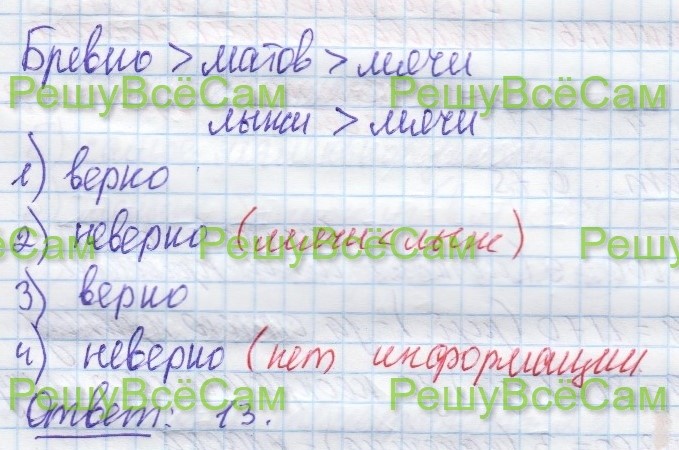 Бревно > матов > мячи
РешуВсёСам РешуВсёСам
лыжи > мячи
1) верно
2) неверно (мячи < лыж)
РешуВсёСам РешуВсёСам РешуВсёСам
3) верно
4) неверно (нет информации
РешуВсёСам РешуВсёСам
Ответ: 13.